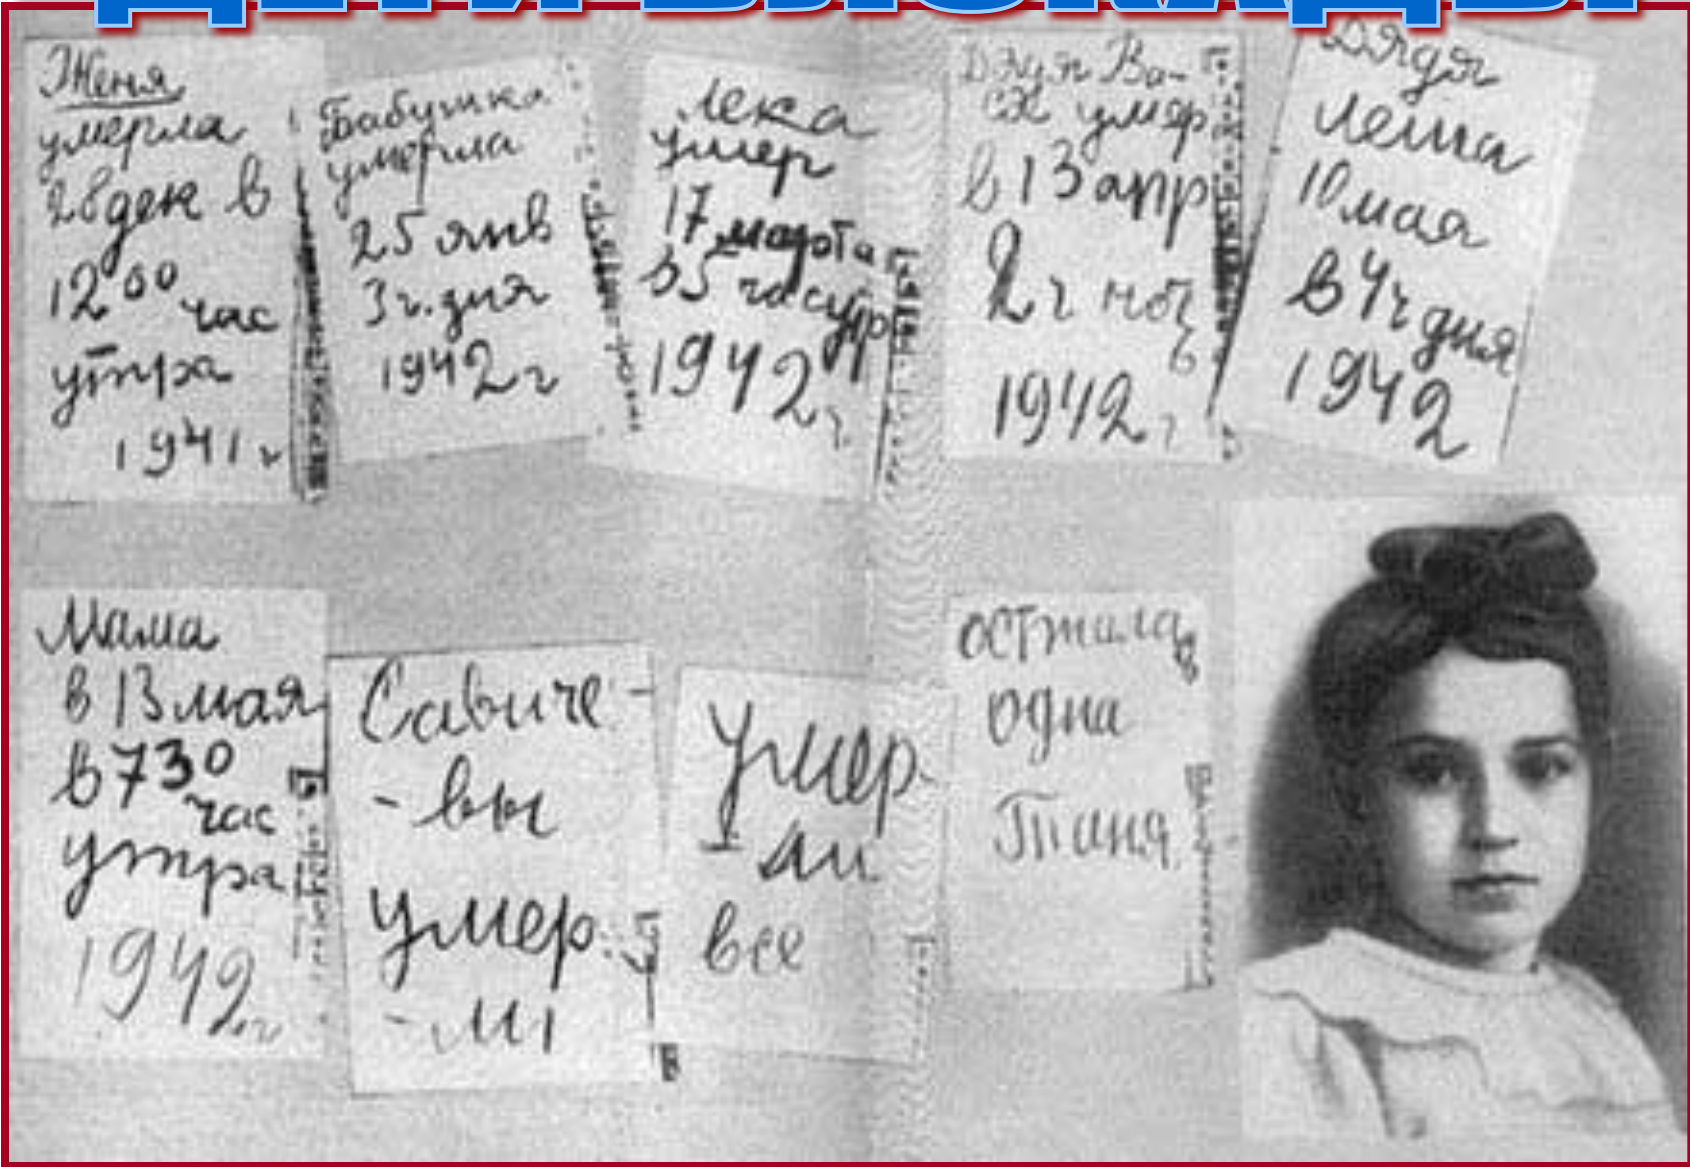 ДЕТИ БЛОКАДЫ
Женя
умерла
28 дек в
12 00 час
утра
1941 г
Бабушка
умерла
25 янв
3 ч. дня
1942 г
Лека
умер
17 марта
в 5 час утр
1942 г
Дядя Ва-
ся умер
в 13 апр
2 ч ночь
1942 г
Дядя
Леша
10 мая
в 4 ч дня
1942
Мама
в 13 мая
в 7 30
час
утра
1942 г
Савиче-
-вы
умер
-ли
Умер-
-ли
все
осталась
одна
Таня